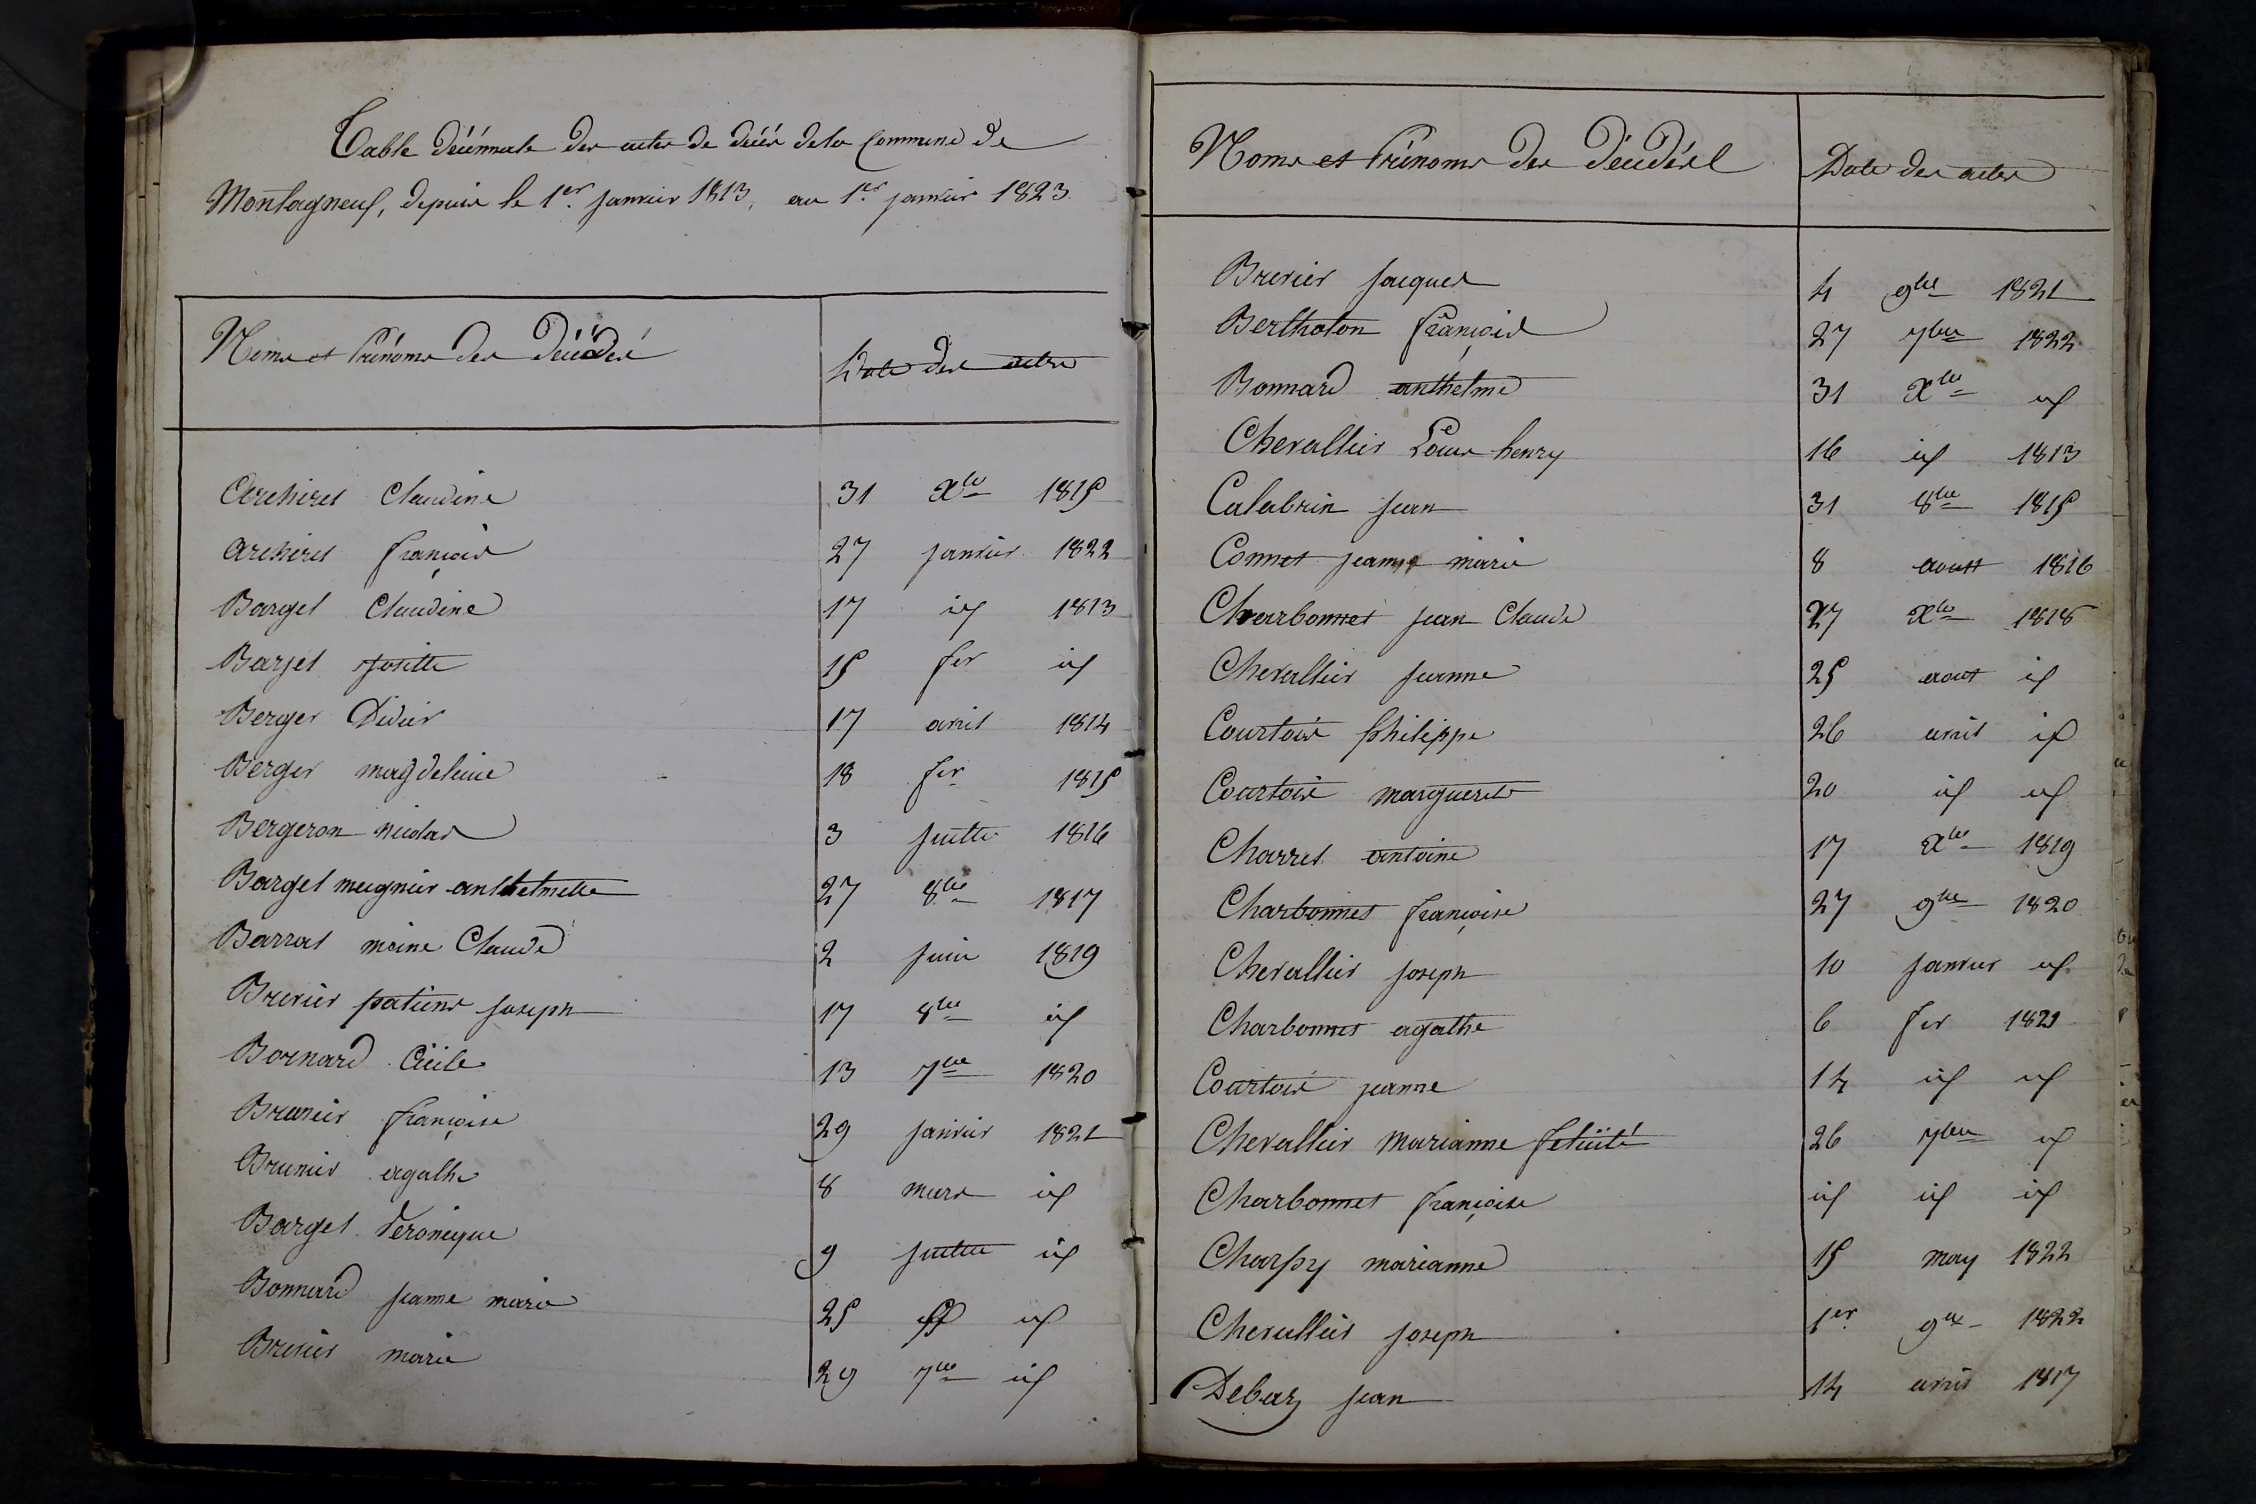 Table décennale des actes de décès de la Commune de
Montagneux, depuis le 1er. janvier 1813, au 1er janvier 1823.
Noms et Prénoms des Décédés Date des actes
Archiret Claudine 31 Xbre 1815
archiret françois 27 janvier 1822
Barget Claudine 17 id 1813
Barjet Josette 15 fer id
Berger Didier 17 avril 1814
Berger magdeleine 18 fer 1815
Bergeron nicolas 3 juillet 1816
Barget mugnier anthelmette 27 8bre 1817
Barrat moine Claude 2 juin 1819
Brevier patient joseph 17 8bre id
Bornard Cécile 13 7bre 1820
Brunier françoise 29 janvier 1821
Brunier agathe 8 mars id
Barget Veronique 9 juillet id
Bonnard jeanne marie 25 id id
Brevier marie 29 7bre id
Noms et Prénoms des Décédés Date des actes
Brevier jacques 4 9bre 1821
Bertholon françois 27 7bre 1822
Bonnard anthelme 31 Xbre id
Chevallier Louis henry 16 id 1813
Calabrin jean 31 8bre 1815
Connet jeanne marie 8 aoust 1816
Charbonnet jean Claude 27 Xbre 1818
Chevallier jeanne 25 aout id
Courtois philippe 26 avril id
Courtois marguerite 20 id id
Charret antoine 17 Xbre 1819
Charbonnet françoise 27 9bre 1820
Chevallier joseph 10 janvier id
Charbonnet agathe 6 fer 1821
Courtois jeanne 14 id id
Chevallier marianne felicité 26 7bre id
Charbonnet françoise id id id
Charpy marianne 15 may 1822
Chevallier joseph 1er 9bre 1822
Debaz jean 14 avril 1817